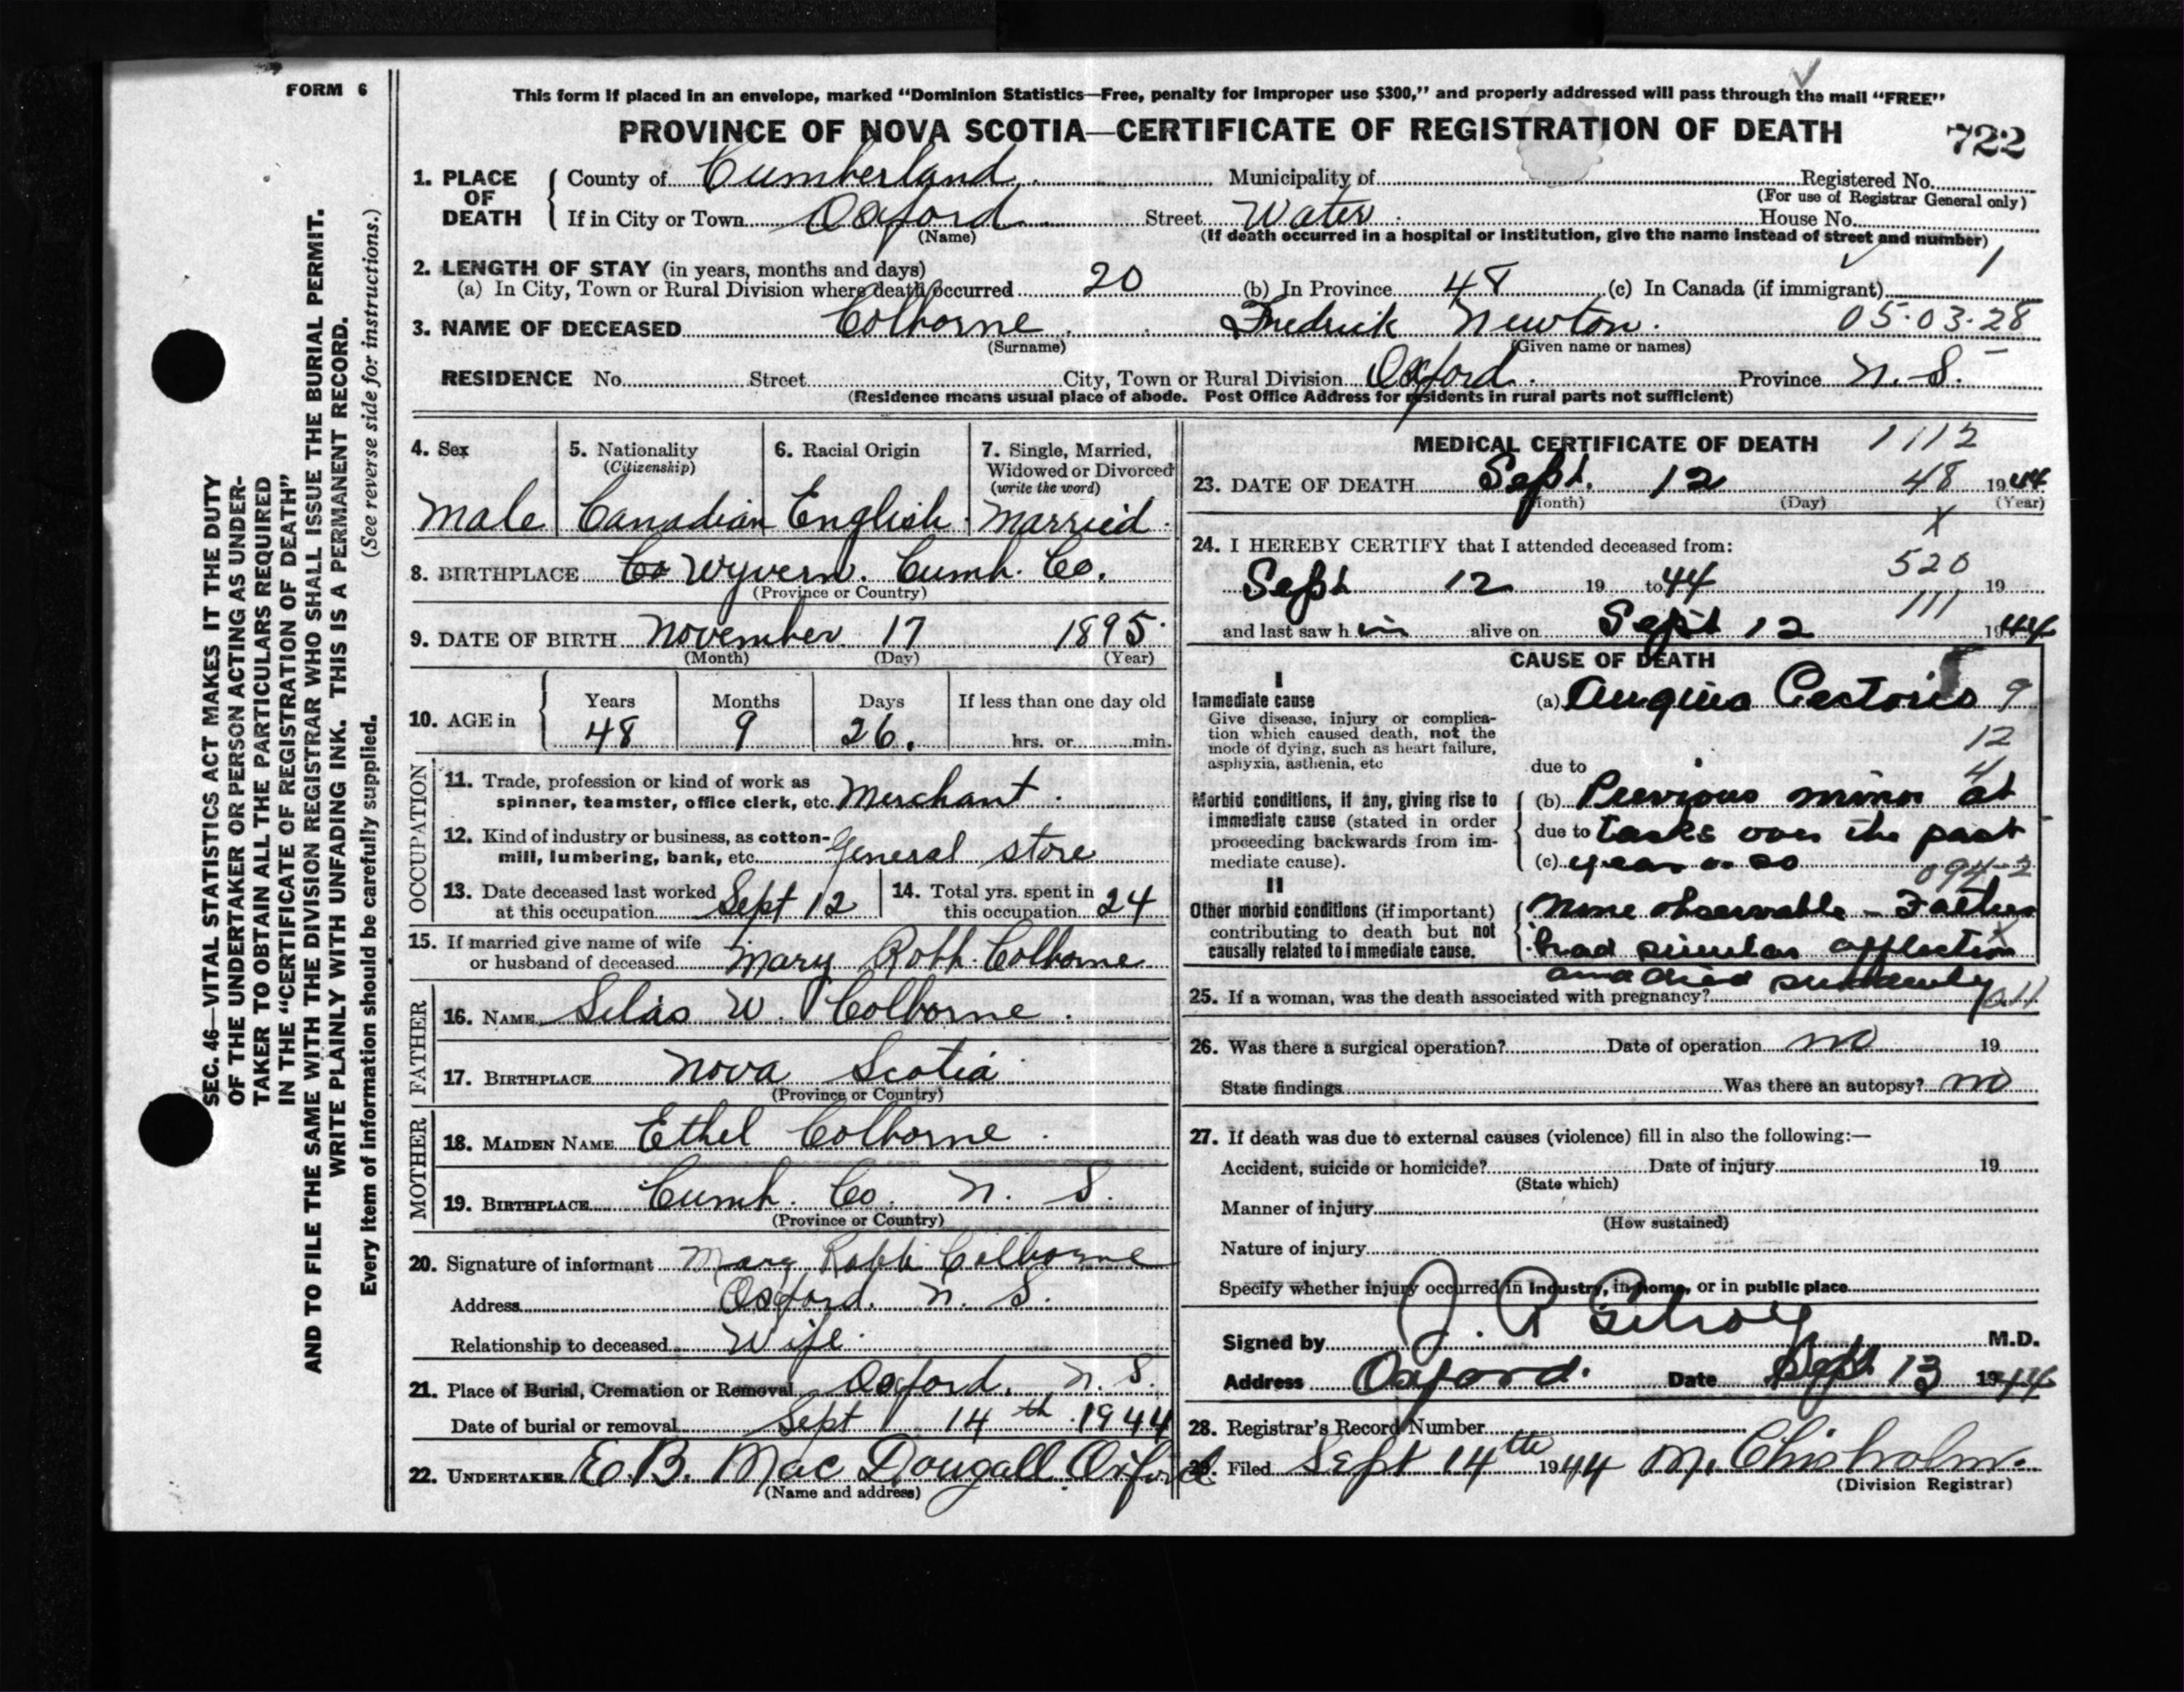 FORM 6
This form if placed in an envelope, marked "Dominion Statistics—Free, penalty for improper use $300," and properly addressed will pass through the mail "FREE"
PROVINCE OF NOVA SCOTIA—CERTIFICATE OF REGISTRATION OF DEATH
722
1. PLACE OF DEATH
County of Cumberland Municipality of Registered No.
(For use of Registrar General only)
If in City or Town Oxford Street Water House No.
(Name)
(If death occurred in a hospital or institution, give the name instead of street and number)
2. LENGTH OF STAY (in years, months and days)
1
(a) In City, Town or Rural Division where death occurred 20 (b) In Province 48 (c) In Canada (if immigrant)
3. NAME OF DECEASED Colborne Fredrick Newton. 05.03.28
(Surname) (Given name or names)
RESIDENCE No. Street City, Town or Rural Division Oxford. Province N. S.
(Residence means usual place of abode. Post Office Address for residents in rural parts not sufficient)
4. Sex
Male
5. Nationality
(Citizenship)
Canadian
6. Racial Origin
English
7. Single, Married,
Widowed or Divorced
(write the word)
Married.
8. BIRTHPLACE Co Wyvern. Cumb. Co.
(Province or Country)
9. DATE OF BIRTH November 17 1895
(Month) (Day) (Year)
10. AGE in
Years Months Days If less than one day old
48 9 26. hrs. or min.
OCCUPATION
11. Trade, profession or kind of work as
spinner, teamster, office clerk, etc. Merchant.
12. Kind of industry or business, as cotton-
mill, lumbering, bank, etc. General store
13. Date deceased last worked
at this occupation Sept 12
14. Total yrs. spent in
this occupation 24
15. If married give name of wife
or husband of deceased Mary Robb Colborne
FATHER
16. NAME Silas W. Colborne.
17. BIRTHPLACE Nova Scotia
(Province or Country)
MOTHER
18. MAIDEN NAME Ethel Colborne.
19. BIRTHPLACE Cumb. Co. N. S.
(Province or Country)
20. Signature of informant Mary Robb Colborne
Address Oxford. N. S.
Relationship to deceased Wife.
21. Place of Burial, Cremation or Removal Oxford. N. S.
Date of burial or removal Sept 14th 1944
22. UNDERTAKER E. B. MacDougall Oxford
(Name and address)
MEDICAL CERTIFICATE OF DEATH 1112
23. DATE OF DEATH Sept. 12 48 1944
(Month) (Day) (Year)
X
24. I HEREBY CERTIFY that I attended deceased from:
520
Sept 12 19 to 44 19
111
and last saw him alive on Sept 12 1944
CAUSE OF DEATH
I
Immediate cause
Give disease, injury or complica-
tion which caused death, not the
mode of dying, such as heart failure,
asphyxia, asthenia, etc
(a) Angina Pectoris 9
12
4
due to
Morbid conditions, if any, giving rise to
immediate cause (stated in order
proceeding backwards from im-
mediate cause).
(b) Previous minor at
due to tacks over the past
(c) year or so
094-2
II
Other morbid conditions (if important)
contributing to death but not
causally related to immediate cause.
None observable - Father
had similar affliction
and died suddenly
X
25. If a woman, was the death associated with pregnancy?
26. Was there a surgical operation? Date of operation no 19
State findings Was there an autopsy? no
27. If death was due to external causes (violence) fill in also the following:—
Accident, suicide or homicide? Date of injury 19
(State which)
Manner of injury
(How sustained)
Nature of injury
Specify whether injury occurred in industry, in home, or in public place
Signed by J. R Gilroy M.D.
Address Oxford. Date Sept 13 1944
28. Registrar's Record Number
29. Filed Sept 14th 1944 M. Chisholm.
(Division Registrar)
SEC. 46—VITAL STATISTICS ACT MAKES IT THE DUTY
OF THE UNDERTAKER OR PERSON ACTING AS UNDER-
TAKER TO OBTAIN ALL THE PARTICULARS REQUIRED
IN THE "CERTIFICATE OF REGISTRATION OF DEATH"
AND TO FILE THE SAME WITH THE DIVISION REGISTRAR WHO SHALL ISSUE THE BURIAL PERMIT.
WRITE PLAINLY WITH UNFADING INK. THIS IS A PERMANENT RECORD.
Every item of information should be carefully supplied. (See reverse side for instructions.)